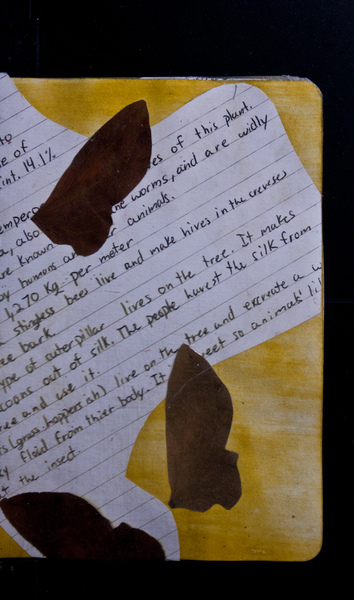 to
se of
int. 14.1%
es of this plant.
tempera ne worms, and are widly
a, also
are known animals.
by humans an
4270 kg. per meter
stingless bees live and make hives in the crevises
ree bark.
type of caterpillar lives on the tree. It makes
cocoons out of silk. The people harvest the silk from
tree and use it.
rs (grass hopper ish) live on the tree and excreate a w
ky fluid from thier body. It eet so animals li
t the insect.